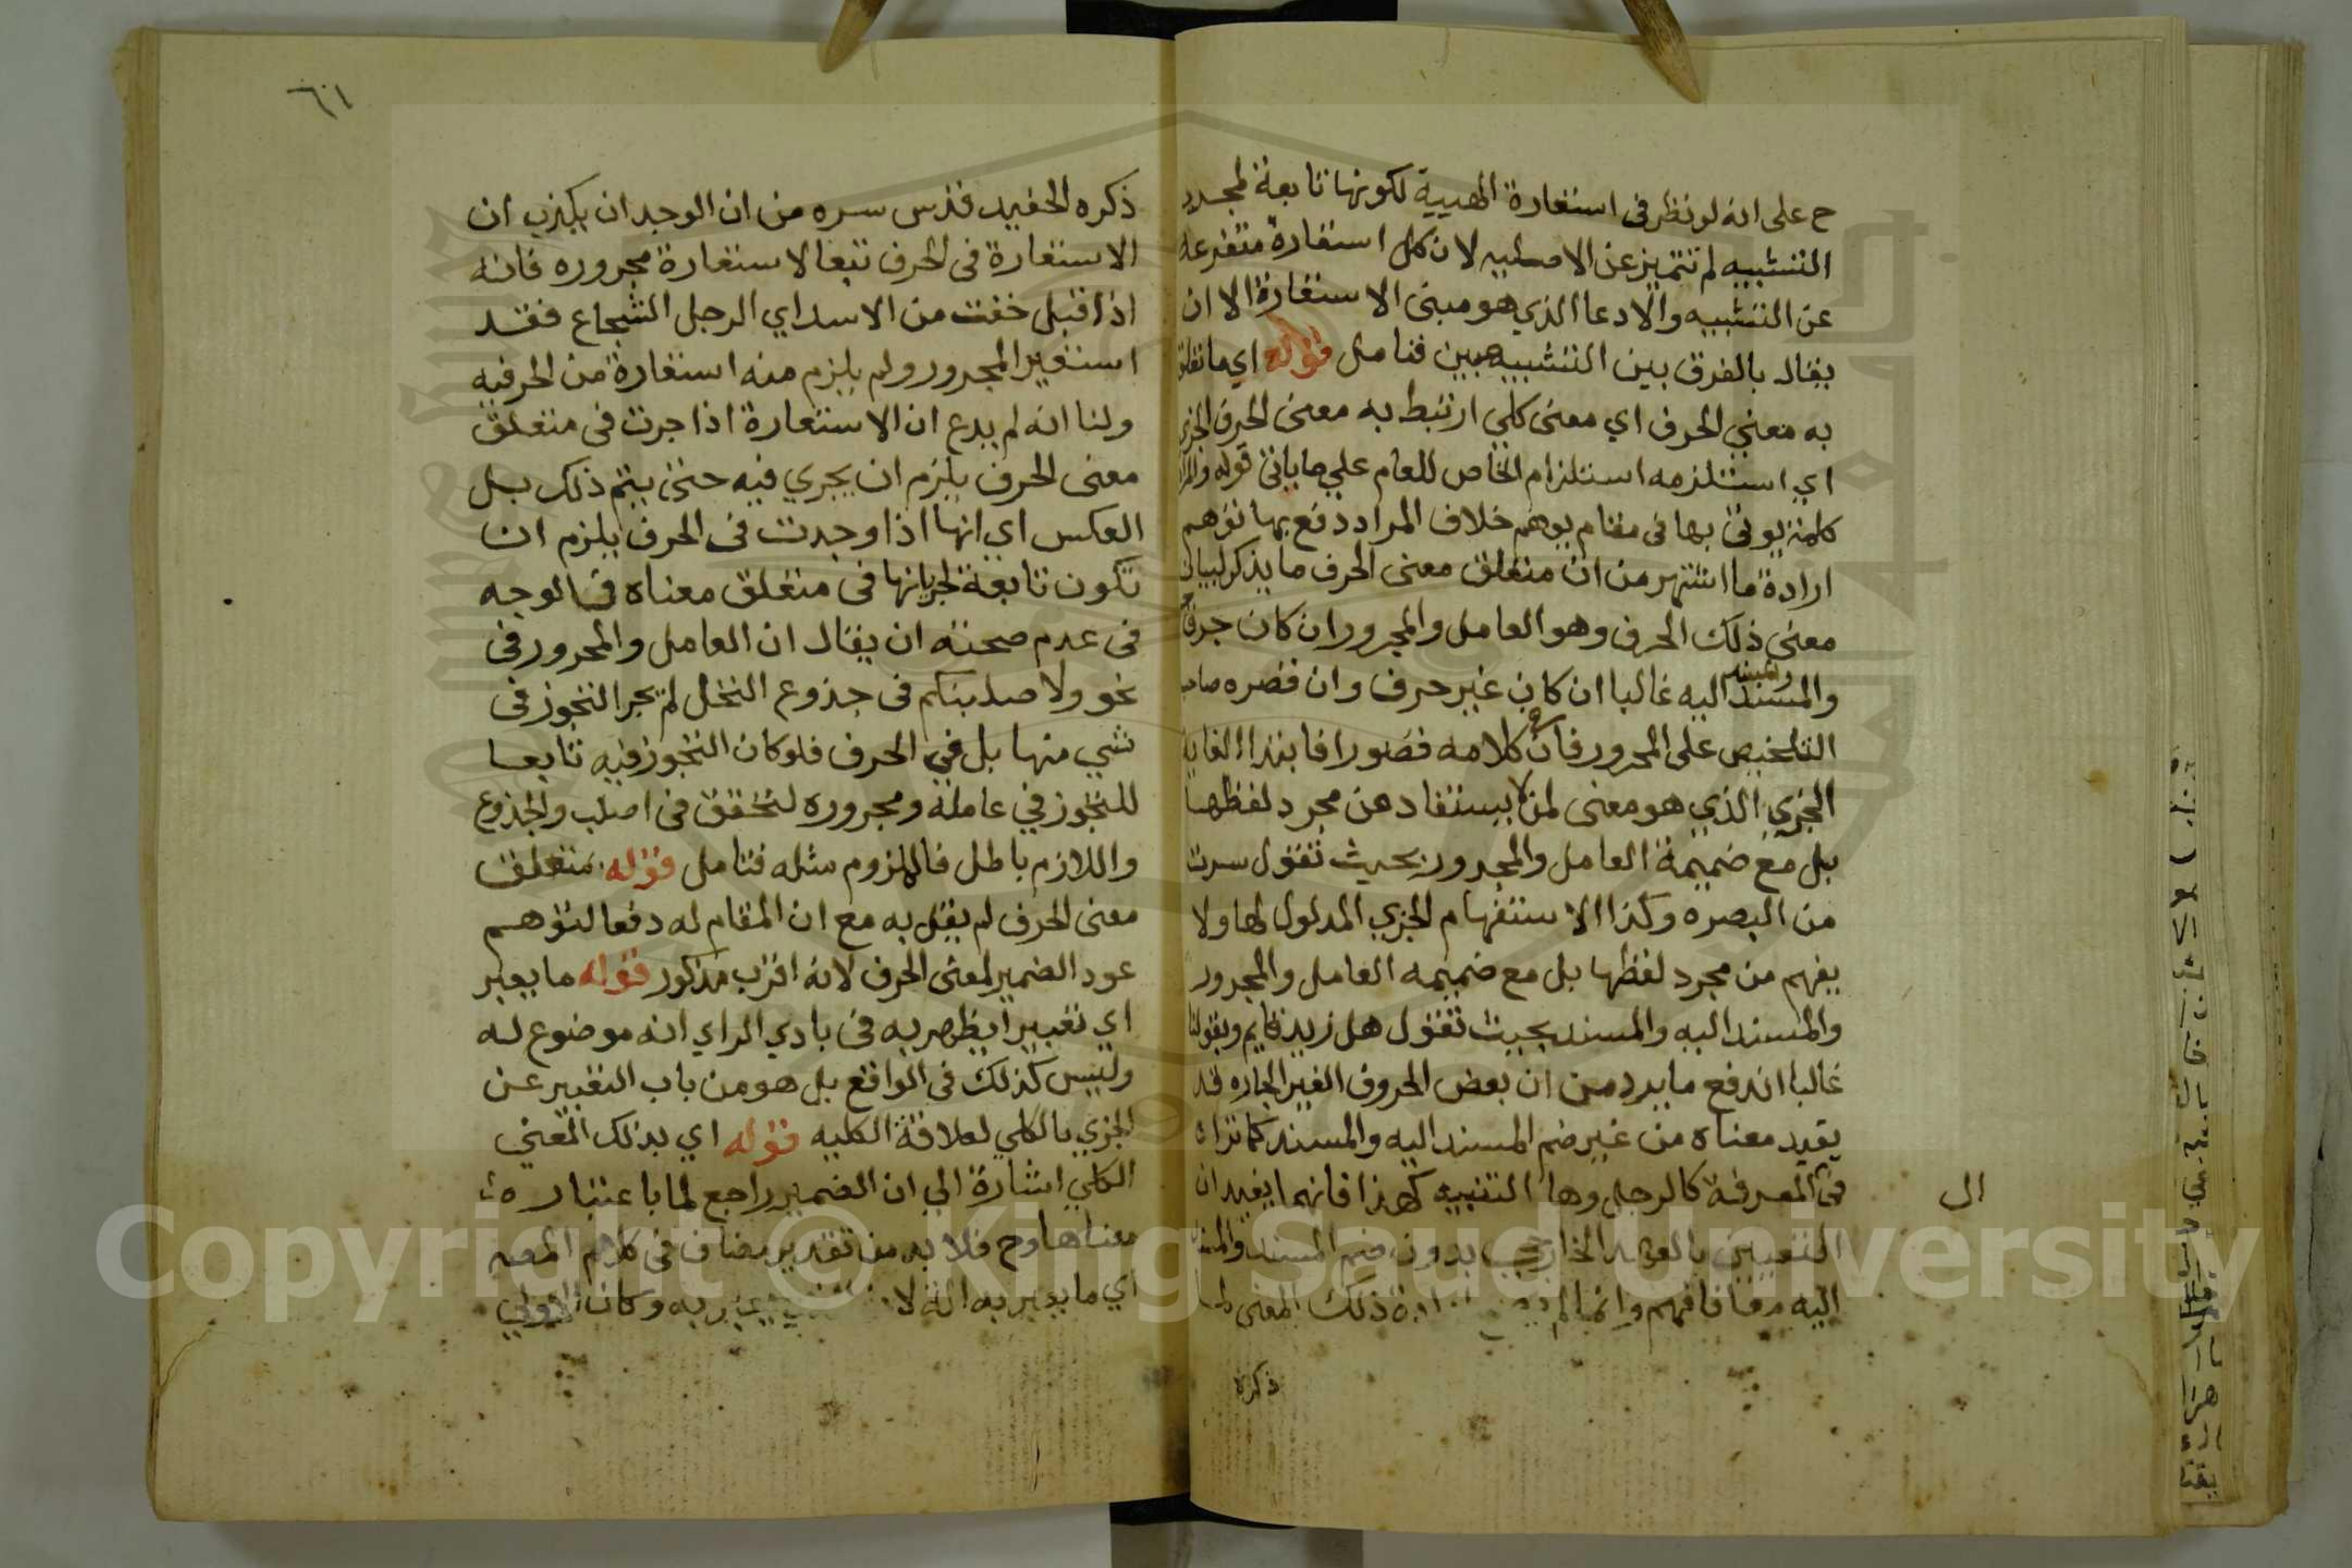 ح على انه لو نظر في استعارة الهيية لكونها تابعة لمجرد
التشبيه لم تتميز عن الاصليه لان كل استعارة متفرعه
عن التشبيه والادعا الذي هو مبنى الاستعارة الا ان
يقال بالفرق بين التشبيهين فتامل قوله اي ما تعلق
به معني الحرف اي معنى كلي ارتبط به معنى الحرف الجزي
اي استلزمه استلزام الخاص للعام علي ما ياتي قوله والمراد
كلمة يوتى بها في مقام يوهم خلاف المراد دفع بها توهم
ارادة ما اشتهر من ان متعلق معنى الحرف ما يذكر لبيان
معنى ذلك الحرف وهو العامل والمجرور ان كان حرف
والمسند والمسند اليه غالبا ان كان غير حرف وان قصره صاحب
التلخيص على المجرور فان في كلامه قصورا فابتداا الغاية
الجزي الذي هو معنى لمن لا يستفاد من مجرد لفظها
بل مع ضميمة العامل والمجرور بحيث تقول سرت
من البصره وكذا الاستفهام الجزي المدلول لها ولا
يفهم من مجرد لفظها بل مع ضميمه العامل والمجرور
والمسند اليه والمسند بحيث تقول هل زيد قايم وبقولنا
غالبا اندفع ما يرد من ان بعض الحروف الغير الجاره قد
يفيد معناه من غير ضم المسند اليه والمسند كما تراه
في المعرفة كالرجل وها التنبيه كهذا فانهما يفيدان
ال
التعيين بالعهد الخارجي بدون ضم المسند والمسند
اليه معا فافهم وانما لم ذلك المعنى لما
ذكره
٦١
ذكره الحفيد قدس سره من ان الوجدان يكذب ان
الاستعارة في الحرف تبعا لاستعارة مجروره فانه
اذا قيل خفت من الاسد اي الرجل الشجاع فقد
استعير المجرور ولم يلزم منه استعارة من الحرفيه
ولنا انه لم يدع ان الاستعارة اذا جرت في متعلق
معنى الحرف يلزم ان يجري فيه حتى يتم ذلك بل
العكس اي انها اذا وجدت في الحرف يلزم ان
تكون تابعة لجريانها في متعلق معناه فالوجه
في عدم صحته ان يقال ان العامل والمجرور في
نحو ولاصلبنكم في جذوع النخل لم يجر التجوز في
شي منها بل في الحرف فلو كان التجوز فيه تابعا
للتجوز في عامله ومجروره لتحقق في اصلب والجذوع
واللازم باطل فالملزوم مثله فتامل قوله متعلق
معنى الحرف لم يقل به مع ان المقام له دفعا لتوهم
عود الضمير لمعنى الحرف لانه اقرب مذكور قوله ما يعبر
اي تعبيرا يظهر به في بادي الراي انه موضوع له
وليس كذلك في الواقع بل هو من باب التعبير عن
الجزي بالكلي لعلاقة الكليه قوله اي بذلك المعني
الكلي اشارة الي ان الضمير راجع لما باعتباره
معناها وح فلا بد من تقدير مضاف في كلام المصه
اي ما يعبر به انه لا يعبر به وكان الاولي